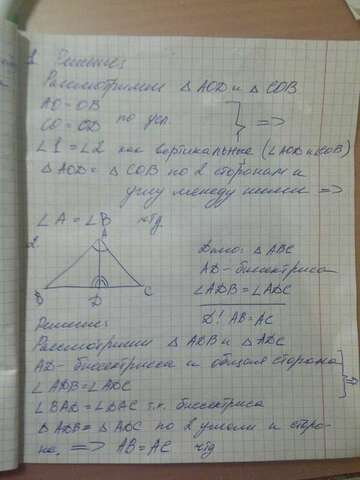 1. Решение:
Рассмотрим △ AOD и △ COB
AO = OB
CO = OD по усл. =>
∠1 = ∠2 как вертикальные (∠AOD и COB)
△ AOD = △ COB по 2 сторонам и
углу между ними =>
∠A = ∠B чтд
2.
A
B
D
C
Дано: △ ABC
AD - биссектриса
∠ADB = ∠ADC
D! AB = AC
Решение:
Рассмотрим △ ADB и △ ADC
AD - биссектриса и общая сторона
∠ADB = ∠ADC =>
∠BAD = ∠DAC т.к. биссектриса
△ ADB = △ ADC по 2 углам и сторо-
не. => AB = AC чтд